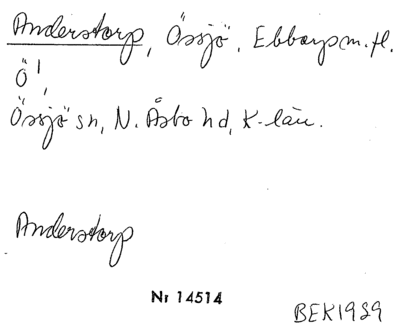 Anderstorp, Össjö, Ebbarp m.fl.
Ö¹,
Össjö sn, N. Åsbo hd, K-län.
Anderstorp
Nr 14514
BEK1989